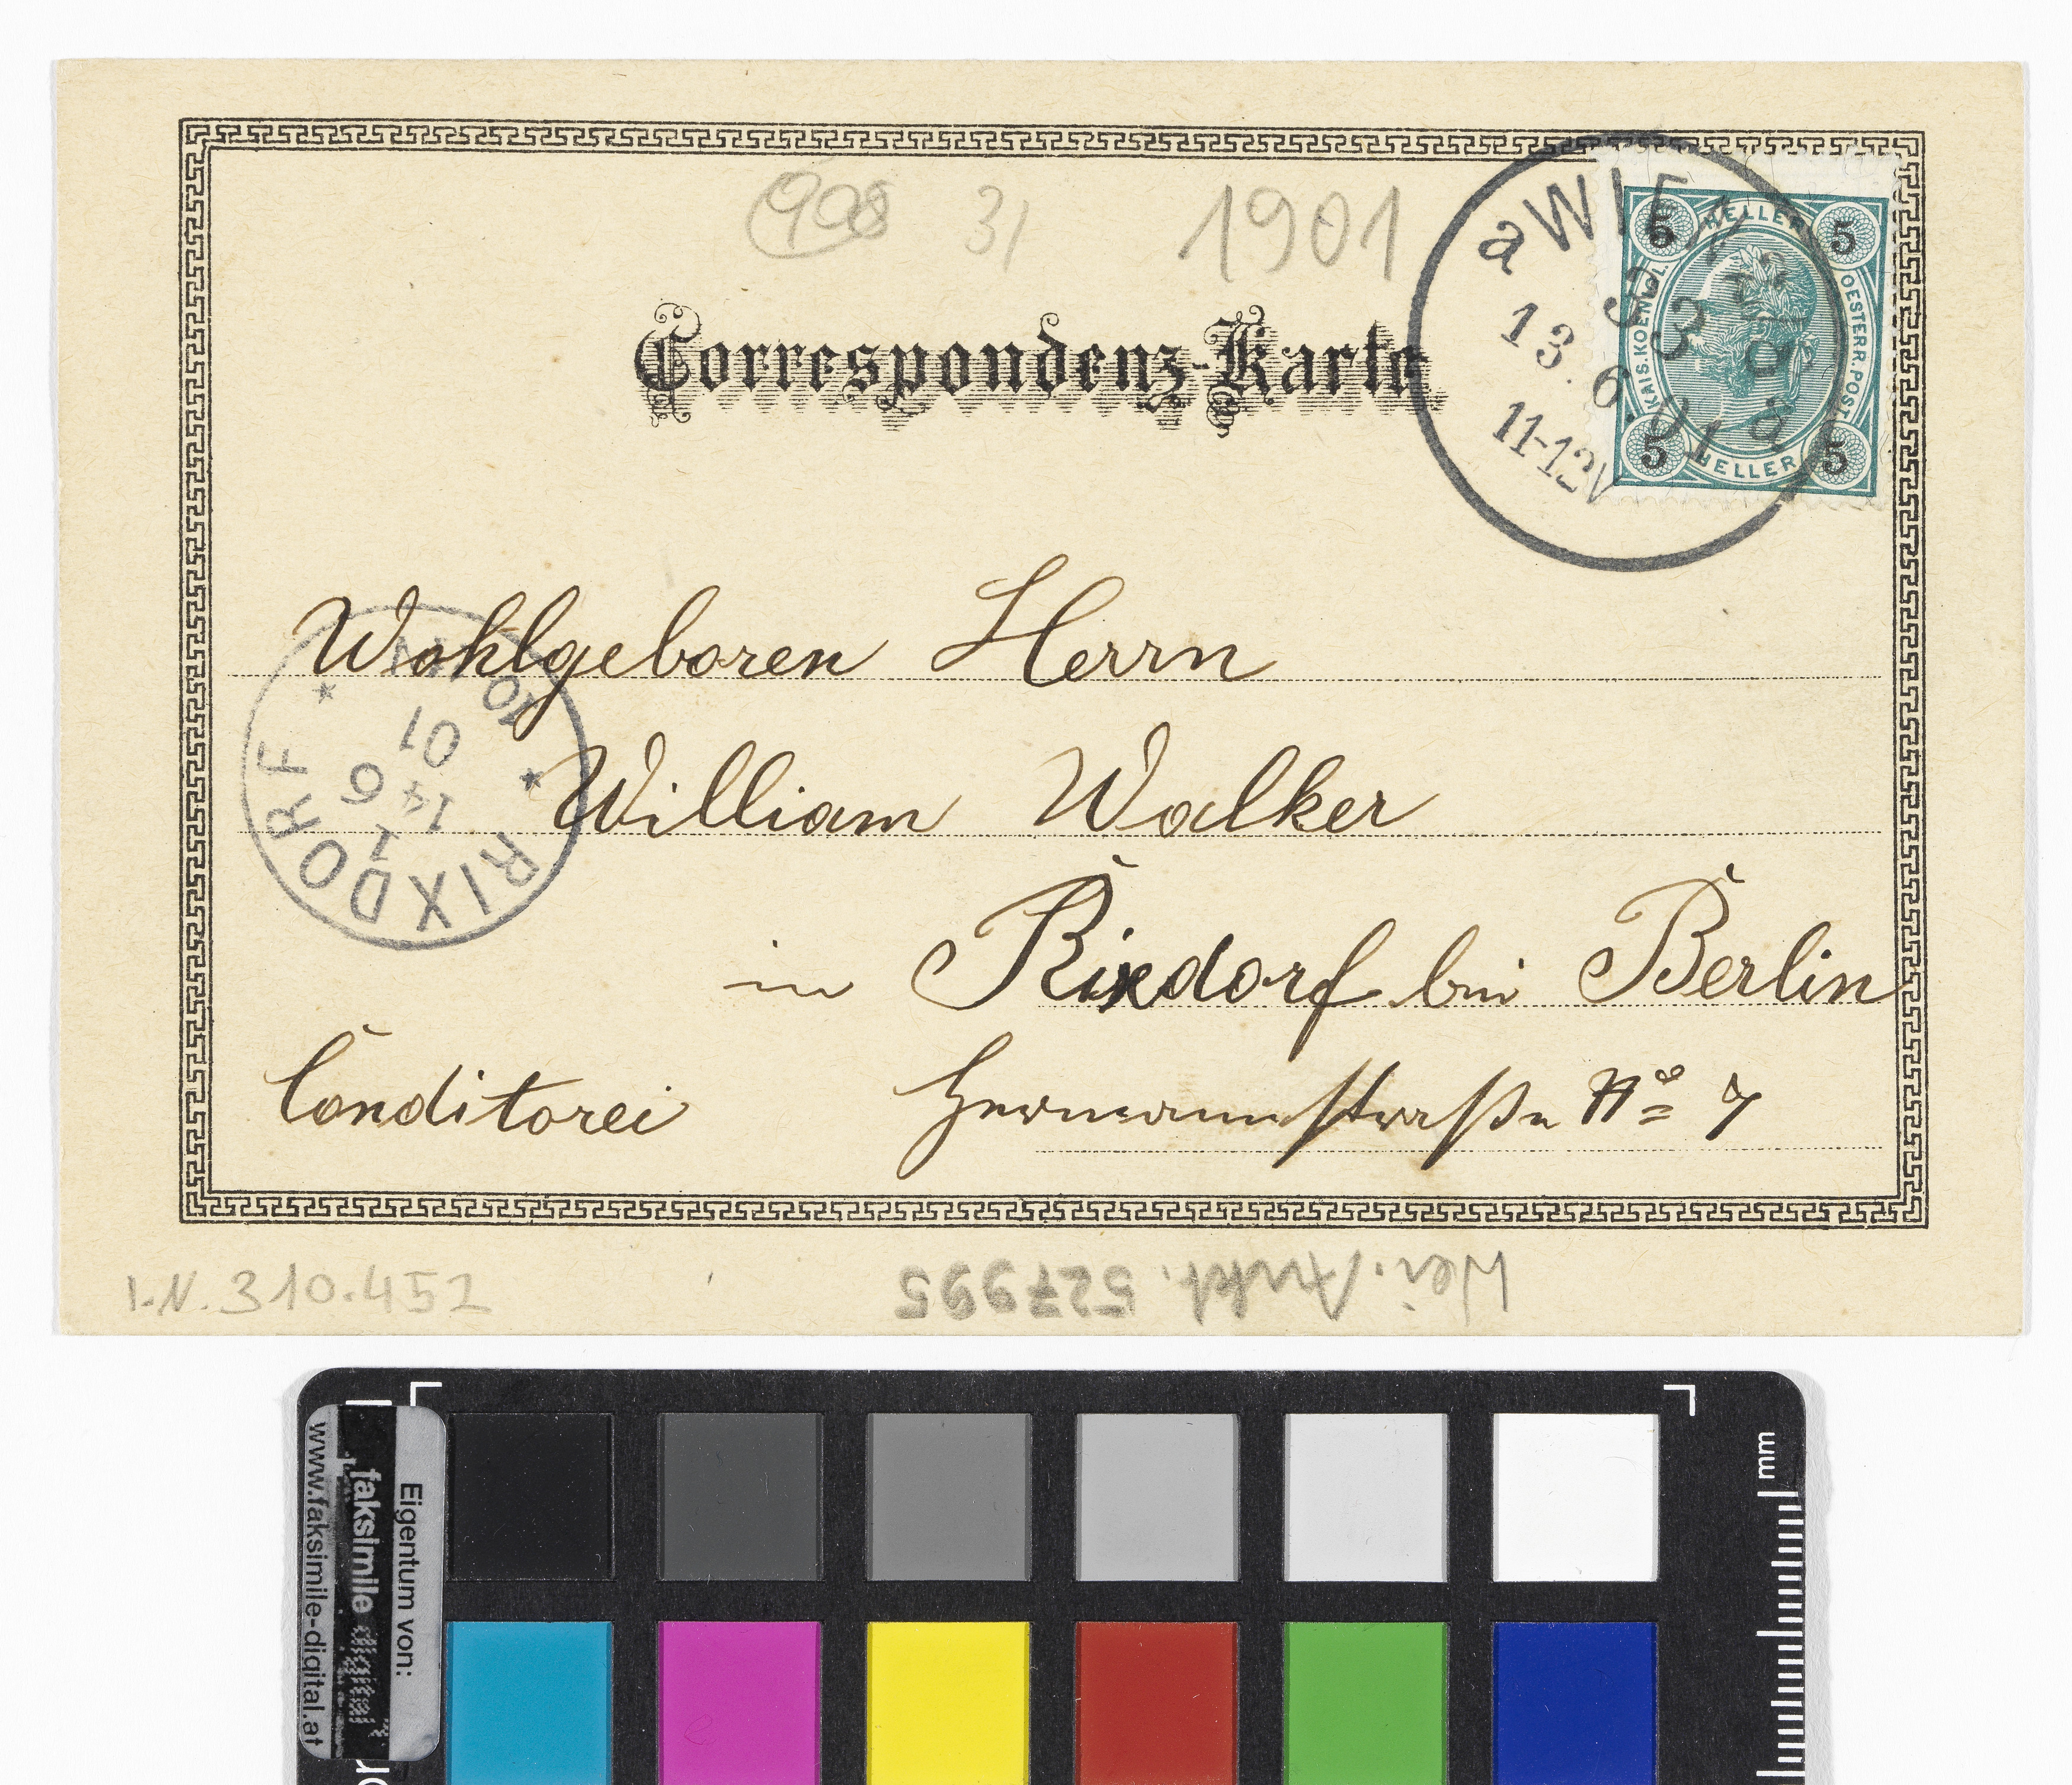 31 1901
Correspondenz-Karte
a WIEN
13. 6. 01
11-12V
5 HELLER 5
KAIS. KOENIGL. OESTERR. POST
5 HELLER 5
Wohlgeboren Herrn
William Walker
in Rixdorf bei Berlin
Conditorei Hermannstraße No 7
* RIXDORF *
1
14 6
01
10
I.N. 310.452
527995
mm
Eigentum von:
faksimile digital
www.faksimile-digital.at